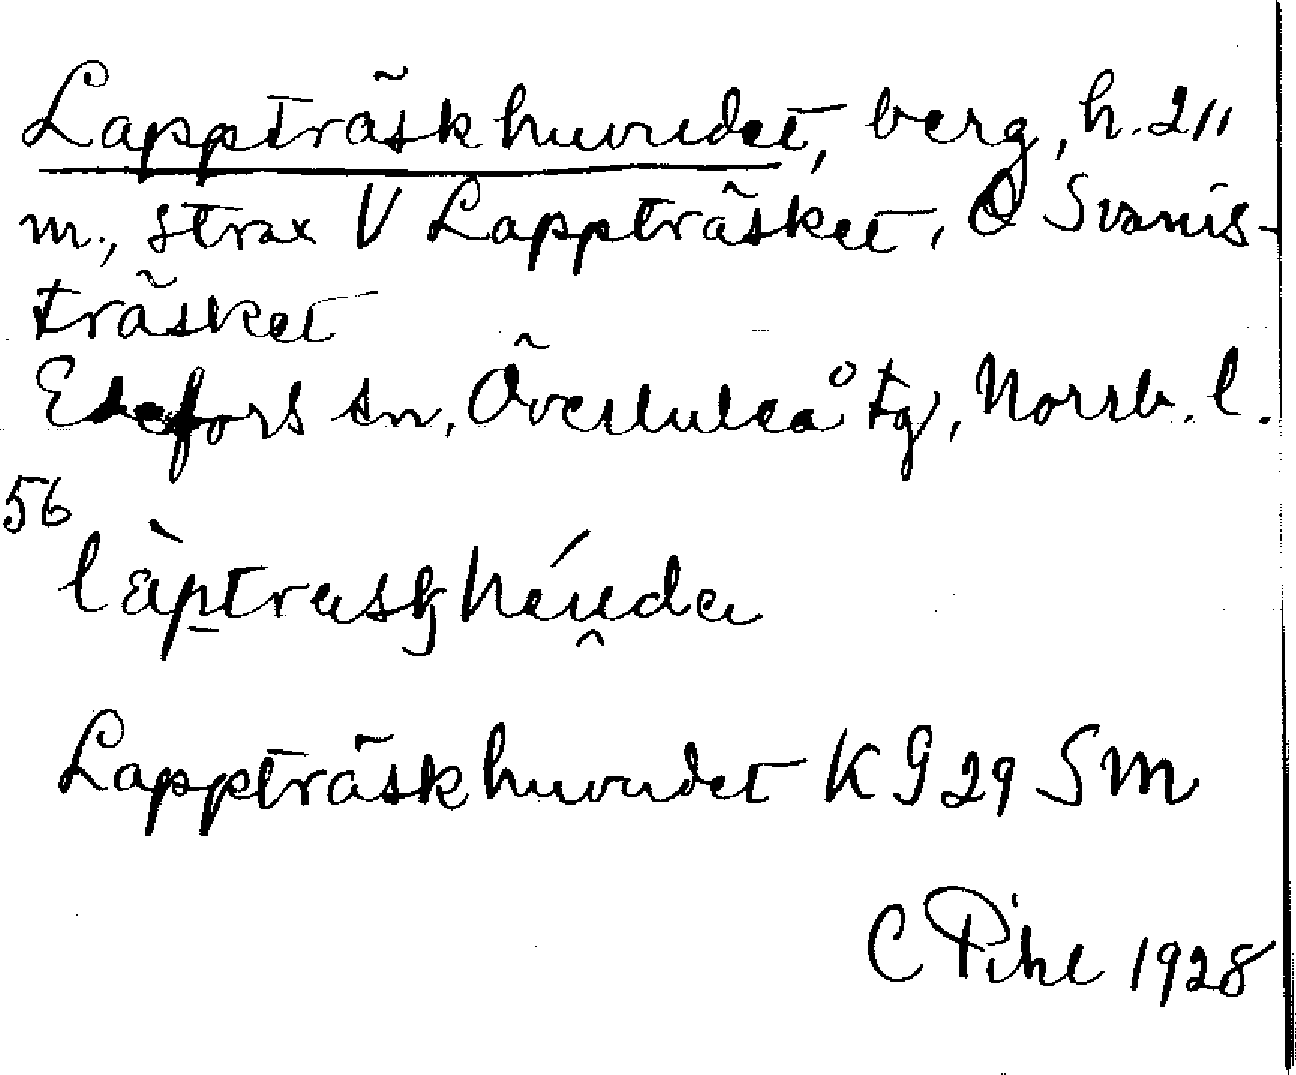 Lappträskhuvudet, berg, h. 211
m., strax V Lappträsket, O Svanis-
träsket
Edefors sn, Överluleå tg, Norrb. l.
56
Lappträskhuvudet K G 29 S m
C Pihl 1928